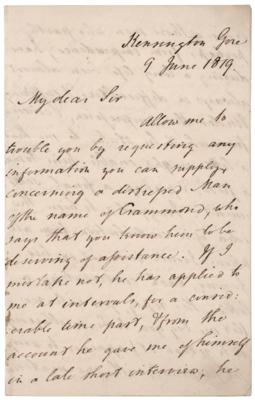 Kensington Gore
9 June 1819
My dear Sir
Allow me to
trouble you by requesting any
information you can supply
concerning a distressed Man
of the name of Grammond, who
says that you know him to be
deserving of assistance. If I
mistake not, he has applied to
me at intervals, for a consid:
erable time past, & from the
account he gave me of himself
in a late short interview, he